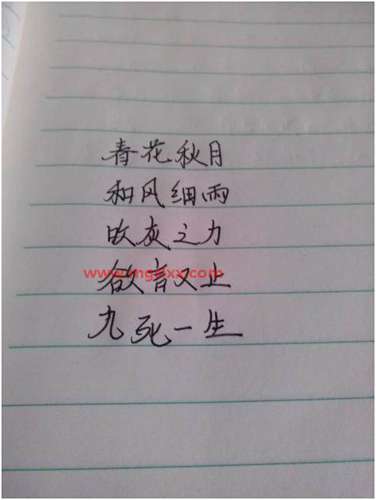 春花秋月
和风细雨
吹灰之力
欲言又止
九死一生